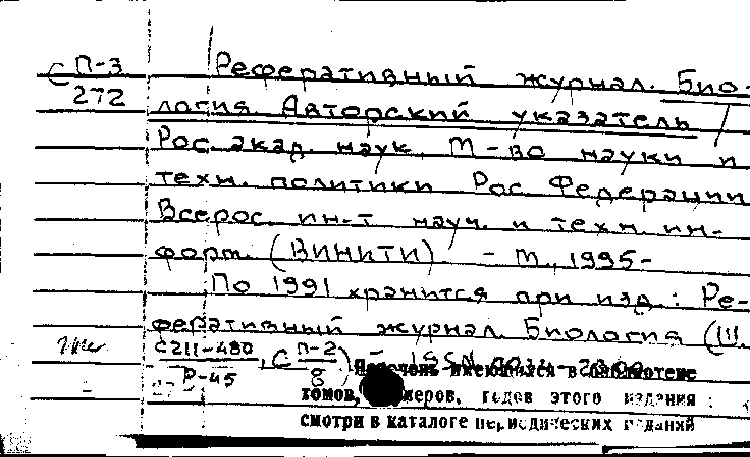 С П-3
272
Реферативный журнал. Био-
логия. Авторский указатель /
Рос. акад. наук, М-во науки и
техн. политики Рос. Федерации
Всерос. ин-т науч. и техн. ин-
форм. (ВИНИТИ). - М., 1995-
По 1991 хранится при изд.: Ре-
феративный журнал. Биология (Ш.
С211-480 , С П-2 )
Р-45 8
Перечень имеющихся в библиотеке
томов, номеров, годов этого издания
смотри в каталоге периодических изданий